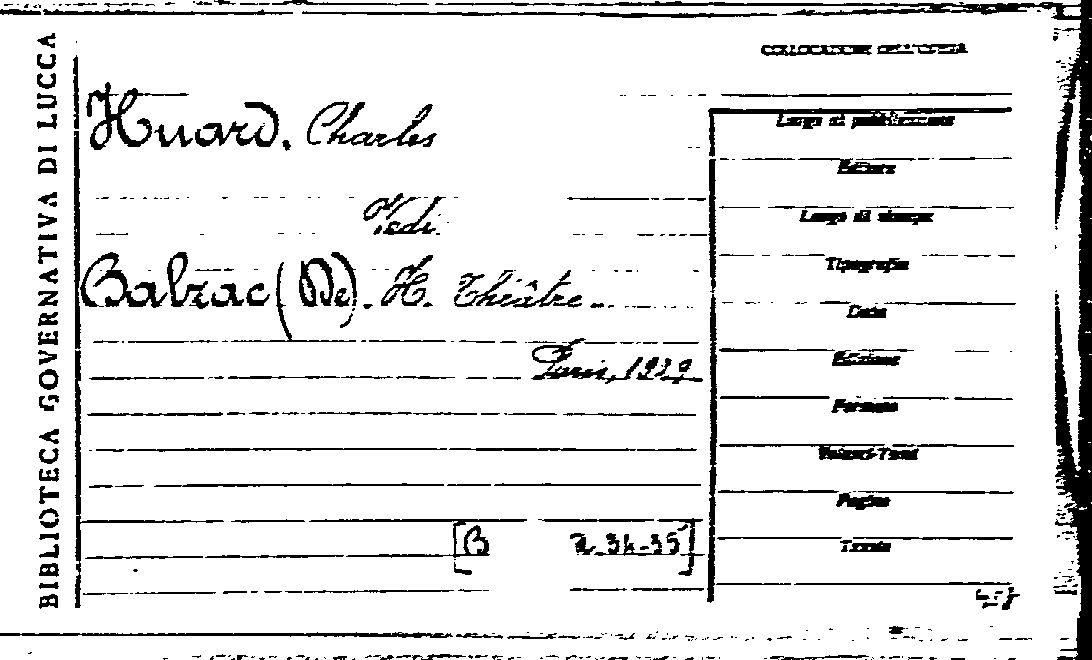 BIBLIOTECA GOVERNATIVA DI LUCCA
COLLOCAZIONE DELL'OPERA
Huard, Charles
Vedi
Balzac (De). H. Théâtre..
Paris, 1929
[B 2.34-35]
Luogo di pubblicazione
Editore
Luogo di stampa
Tipografia
Data
Edizione
Formato
Volumi-Tomi
Pagine
Tavole